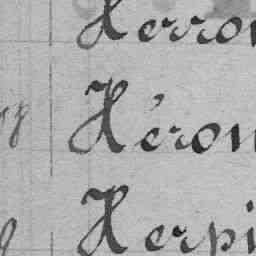 Herron
Héron
Herpi